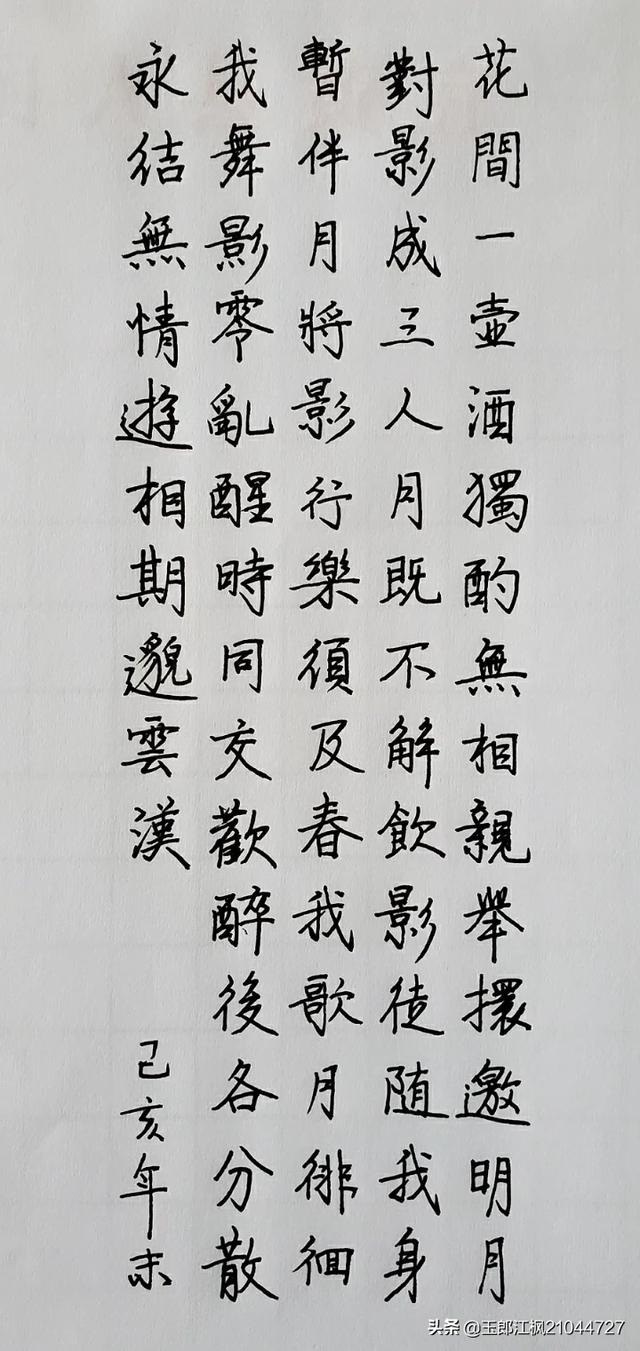 花間一壺酒獨酌無相親舉擐邀明月
對影成三人月既不解飲影徒随我身
暫伴月將影行樂須及春我歌月徘徊
我舞影零亂醒時同交歡醉後各分散
永結無情遊相期邈雲漢
己亥年末
头条 @玉郎江枫21044727